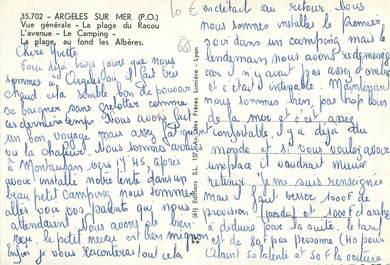 35.702 - ARGELES SUR MER (P.O.)
Vue générale - La plage du Racou
L'avenue - Le Camping -
La plage, au fond les Albères.
10 €
Chère Mette
Voici déjà deux jours que nous
sommes à Argelès où il fait très
chaud cela semble bon de pouvoir
se baigner sans grelotter comme
ces derniers temps. Nous avons fait
un bon voyage mais assez fatiguant
vu la chaleur. Nous sommes arrivés
à Montauban vers 17H45, après
avoir installé notre tente dans un
beau petit camping nous sommes
allés voir nos parents qui nous
attendaient. Nous avons de bien
le petit neveu est très mignon
je vous raconterai tout cela
en détail au retour. Nous
nous sommes installés le premier
soir dans un camping mais le
lendemain nous avons redéménagé
car il n'y avait pas assez d'ombre
et c'était infernal. Maintenant
nous sommes bien, pas trop loin
de la mer et c'est assez
confortable, il y a déjà du
monde et si vous voulez avoir
une place il vaudrait mieux
retenir. Je me suis renseignée
il faut verser 100F de
provision
à déduire par la suite. Le tarif
est de 80F par personne
(61) Editions S.L. Frères Lumière - Lyon